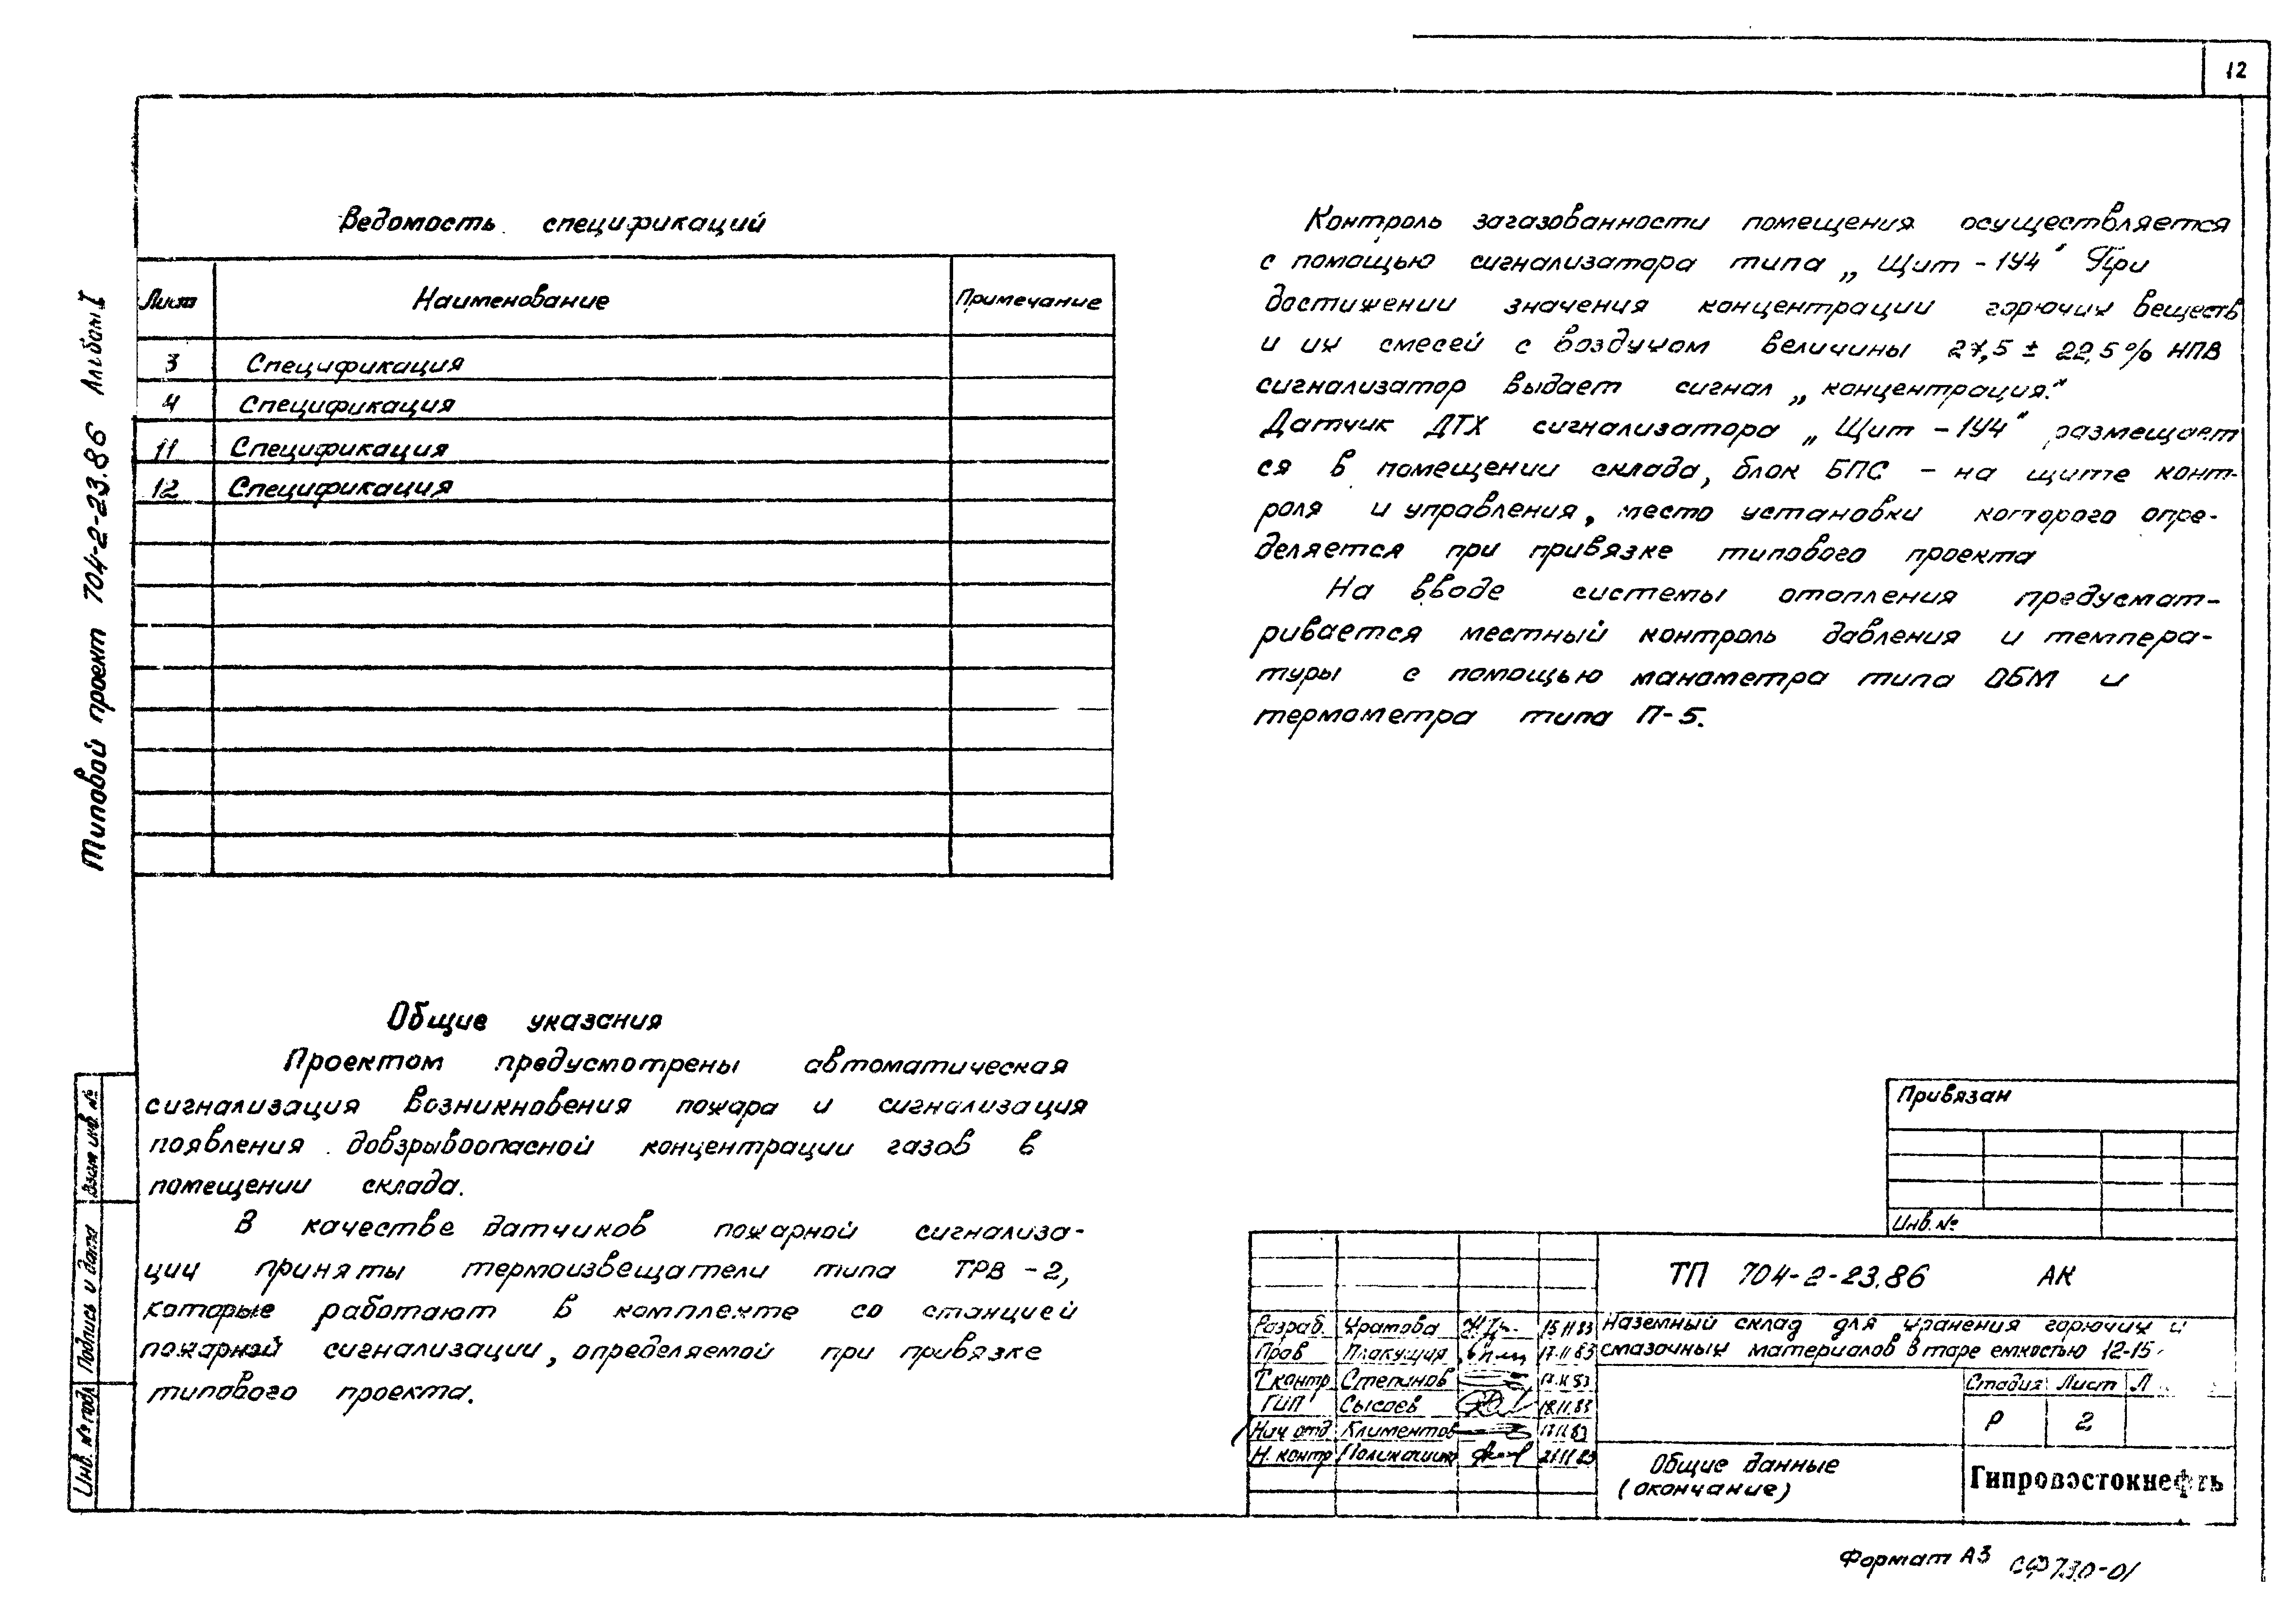 12
Типовой проект 704-2-23.86 Альбом I
Ведомость спецификаций
Лист Наименование Примечание
3 Спецификация
4 Спецификация
11 Спецификация
12 Спецификация
Общие указания
Проектом предусмотрены автоматическая
сигнализация возникновения пожара и сигнализация
появления довзрывоопасной концентрации газов в
помещении склада.
В качестве датчиков пожарной сигнализа-
ции приняты термоизвещатели типа ТРВ-2,
которые работают в комплекте со станцией
пожарной сигнализации, определяемой при привязке
типового проекта.
Контроль загазованности помещения осуществляется
с помощью сигнализатора типа „Щит-1У4" При
достижении значения концентрации горючих веществ
и их смесей с воздухом величины 27,5 ± 22,5% НПВ
сигнализатор выдает сигнал „концентрация."
Датчик ДТХ сигнализатора „Щит-1У4" размещает
ся в помещении склада, блок БПС - на щите конт-
роля и управления, место установки которого опре-
деляется при привязке типового проекта
На вводе системы отопления предусмат-
ривается местный контроль давления и темпера-
туры с помощью манометра типа ОБМ и
термометра типа П-5.
Привязан
Инв.№
ТП 704-2-23.86 АК
Разраб. Уратова 15.11.83
Пров Плакущая 17.11.83
Т.контр Степанов
ГИП Сысоев 18.11.83
Нач отд. Климентов
Н. контр 21.11.83
Наземный склад для хранения горючих и
смазочных материалов в таре емкостью 12-15
Стадия Лист Л
Р 2
Общие данные
(окончание)
Гипровостокнефть
Взам инв. №
Подпись и дата
Инв. № подл
Формат А3 СФ730-01